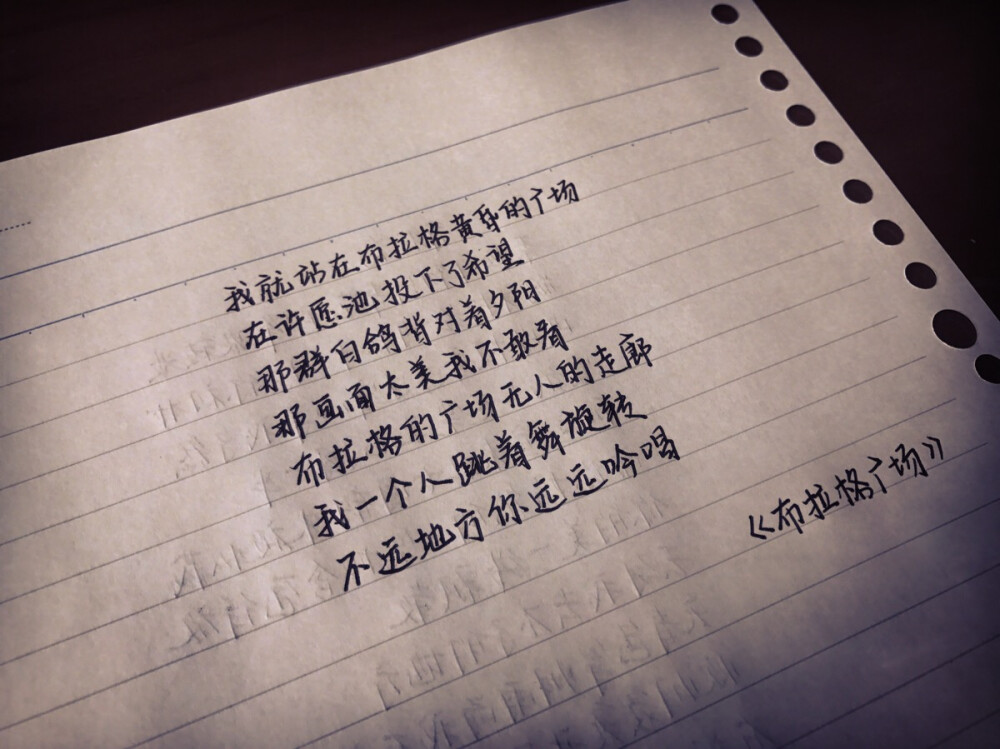 我就站在布拉格黄昏的广场
在许愿池投下了希望
那群白鸽背对着夕阳
那画面太美我不敢看
布拉格的广场无人的走廊
我一个人跳着舞旋转
不远地方你远远吟唱
《布拉格广场》